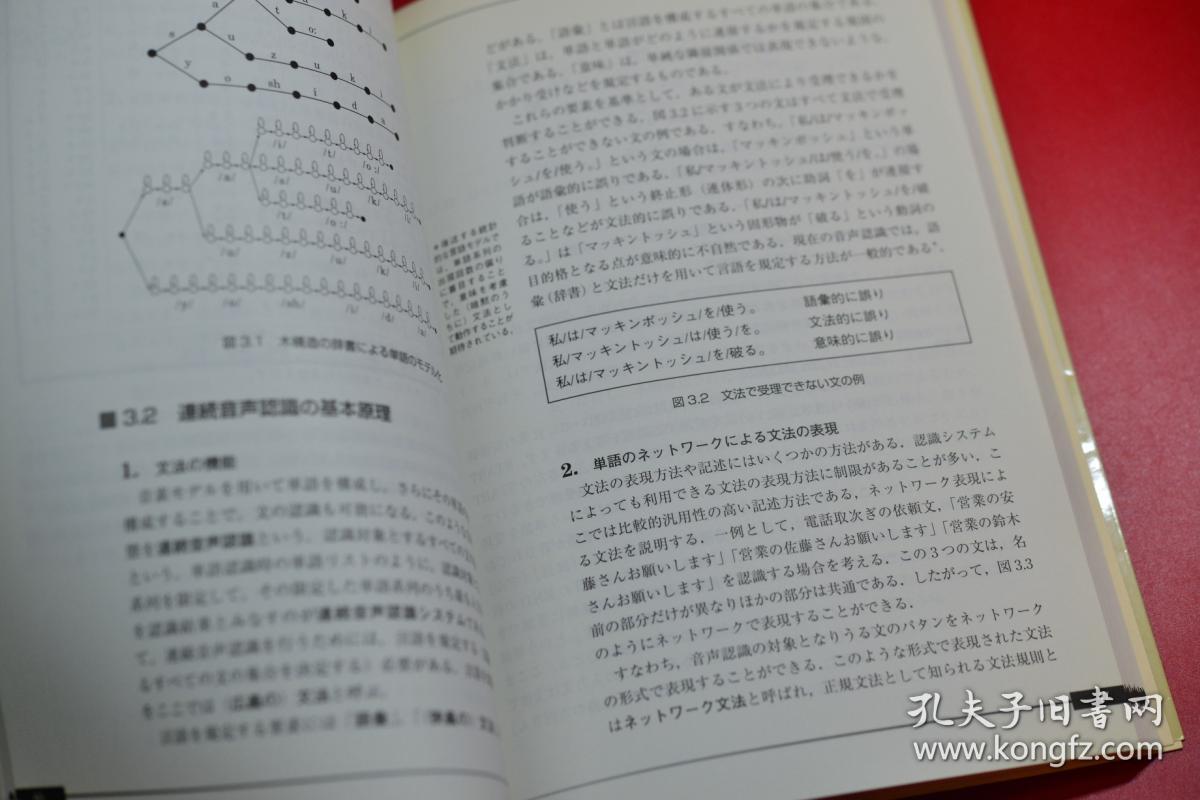 s
a
t
o:
k
i
u
z
u
k
i
y
o
sh
i
d
a
図3.1 木構造の辞書による単語のモデル化
■3.2 連続音声認識の基本原理
1. 文法の機能
音素モデルを用いて単語を構成し，さらにその単語
構成することで，文の認識も可能になる．このような
連続音声認識という．認識対象とするすべての
という．単語認識時の単語リストのように，認識対象
系列を限定して，その限定した単語系列のうち最も
を認識結果とみなすのが連続音声認識システムである
て，連続音声認識を行うためには，言語を規定する
るすべての文の集合を決定する）必要がある．
をここでは（広義の）文法と呼ぶ．
言語を規定する要素には「語彙」，「（狭義の）文法」
どがある．「語彙」とは言語を構成するすべての単語の集合である．
「文法」は，単語と単語がどのように連接するかを規定する規則の
集合である．「意味」は，単純な隣接関係では表現できないような，
かかり受けなどを規定するものである．
これらの要素を基準として，ある文が文法により受理できるかを
判断することができる．図3.2に示す3つの文はすべて文法で受理
することができない文の例である．すなわち，「私/は/マッキンボッ
シュ/を/使う。」という文の場合は，「マッキンボッシュ」という単
語が語彙的に誤りである．「私/マッキントッシュ/は/使う/を。」の場
合は，「使う」という終止形（連体形）の次に助詞「を」が連接す
ることなどが文法的に誤りである．「私/は/マッキントッシュ/を/破
る。」は「マッキントッシュ」という固形物が「破る」という動詞の
目的格となる点が意味的に不自然である．現在の音声認識では，語
彙（辞書）と文法だけを用いて言語を規定する方法が一般的である*．
*後述する統計
的な言語モデルで
は，単語系列の
出現回数の偏り
に着目すること
で，意味を考慮
した（暗黙のう
ちに）文法とし
て動作することが
期待されている．
私/は/マッキンボッシュ/を/使う。 語彙的に誤り
私/マッキントッシュ/は/使う/を。 文法的に誤り
私/は/マッキントッシュ/を/破る。 意味的に誤り
図3.2 文法で受理できない文の例
2. 単語のネットワークによる文法の表現
文法の表現方法や記述にはいくつかの方法がある．認識システム
によっても利用できる文法の表現方法に制限があることが多い．こ
こでは比較的汎用性の高い記述方法である，ネットワーク表現によ
る文法を説明する．一例として，電話取次ぎの依頼文，「営業の安
藤さんお願いします」「営業の佐藤さんお願いします」「営業の鈴木
さんお願いします」を認識する場合を考える．この3つの文は，名
前の部分だけが異なりほかの部分は共通である．したがって，図3.3
のようにネットワークで表現することができる．
すなわち，音声認識の対象となりうる文のパタンをネットワーク
の形式で表現することができる．このような形式で表現された文法
はネットワーク文法と呼ばれ，正規文法として知られる文法規則と
孔夫子旧书网
www.kongfz.com